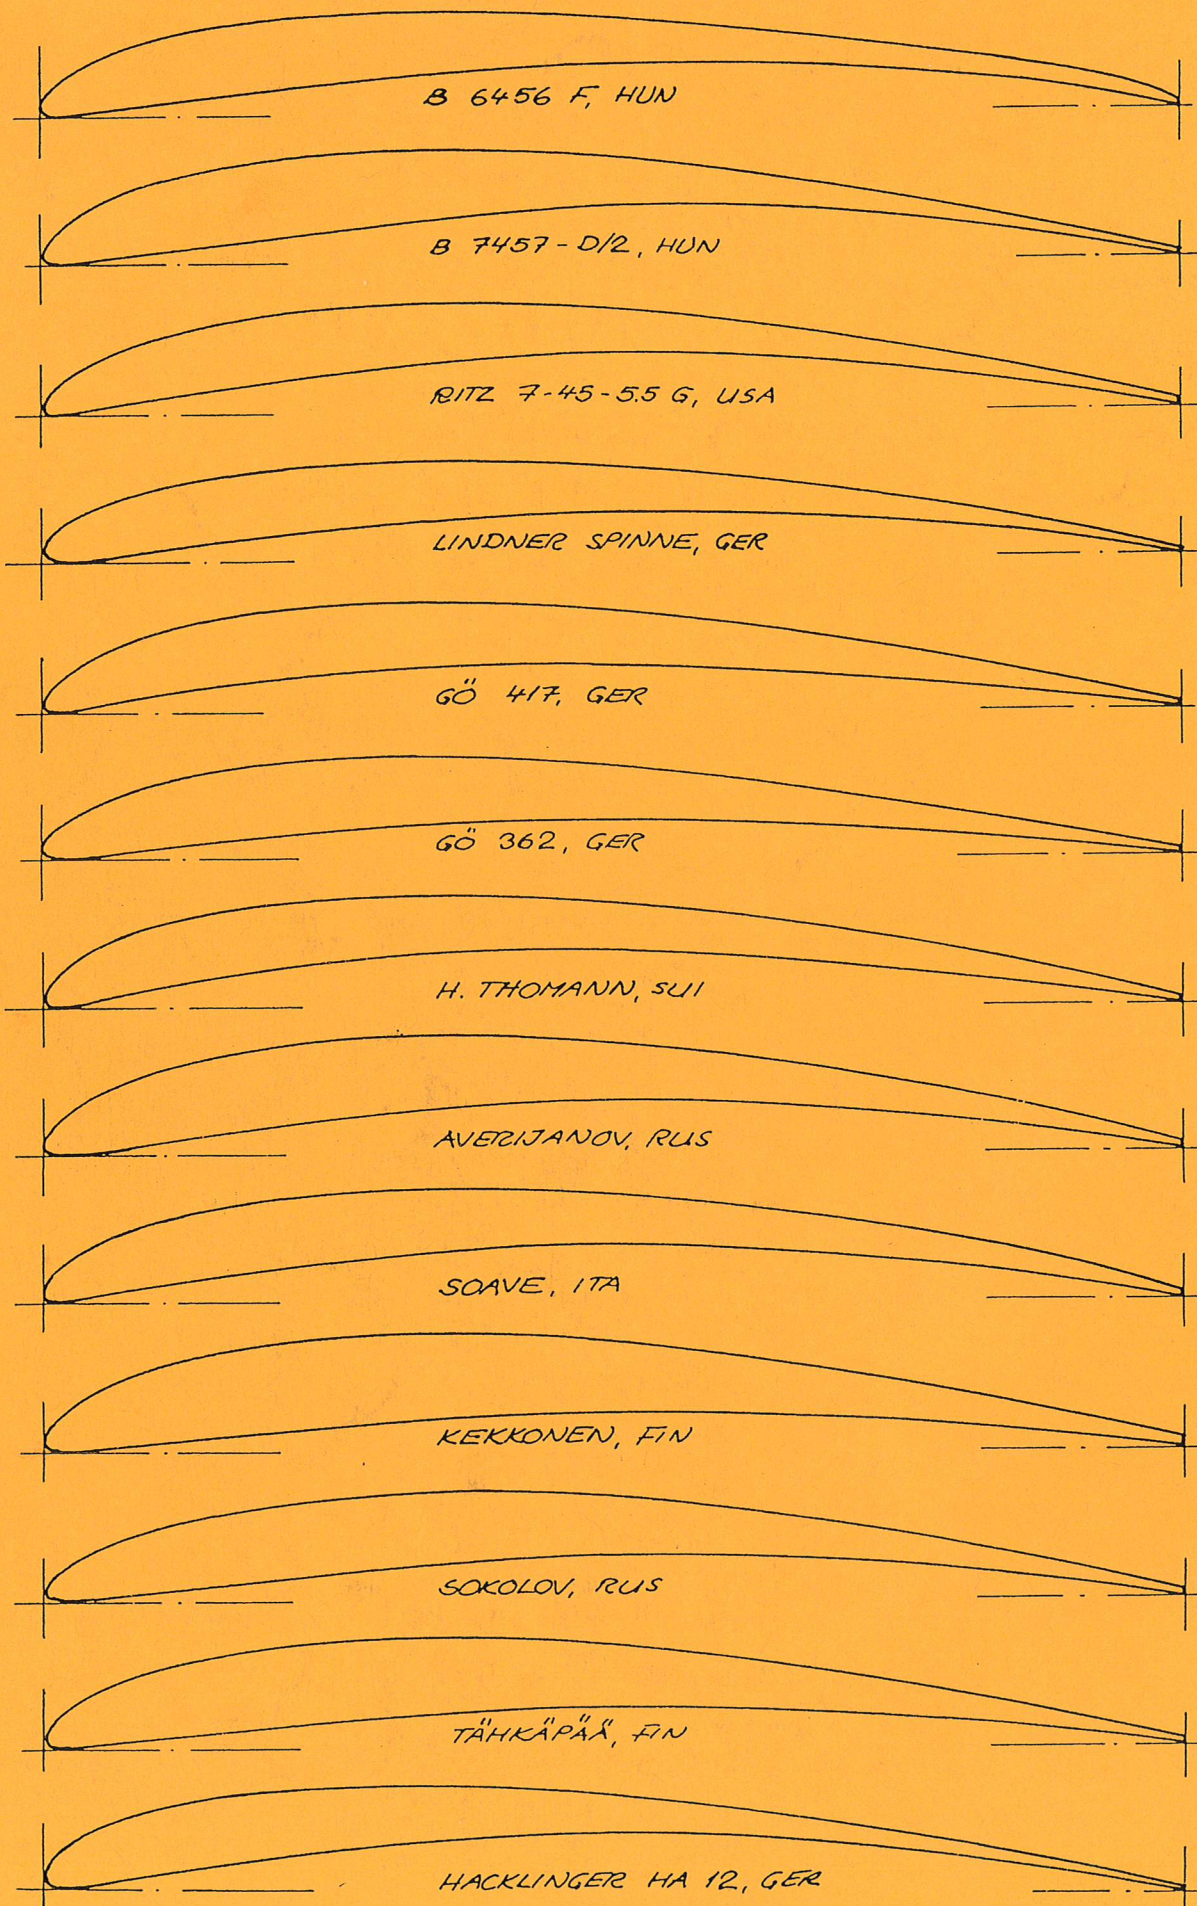 B 6456 F, HUN
B 7457-D/2, HUN
RITZ 7-45-5.5 G, USA
LINDNER SPINNE, GER
GÖ 417, GER
GÖ 362, GER
H. THOMANN, SUI
AVERIJANOV, RUS
SOAVE, ITA
KEKKONEN, FIN
SOKOLOV, RUS
TÄHKÄPÄÄ, FIN
HACKLINGER HA 12, GER